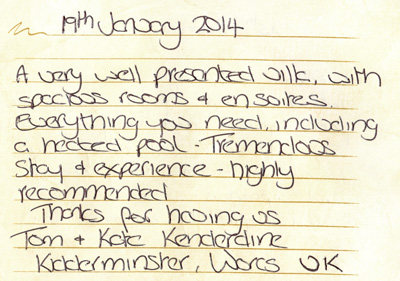 19th January 2014
A very well presented villa, with
spacious rooms & ensuites.
Everything you need, including
a heated pool - Tremendous
Stay & experience - highly
recommended
Thanks for having us
Tom & Kate Kenderdine
Kidderminster, Worcs UK